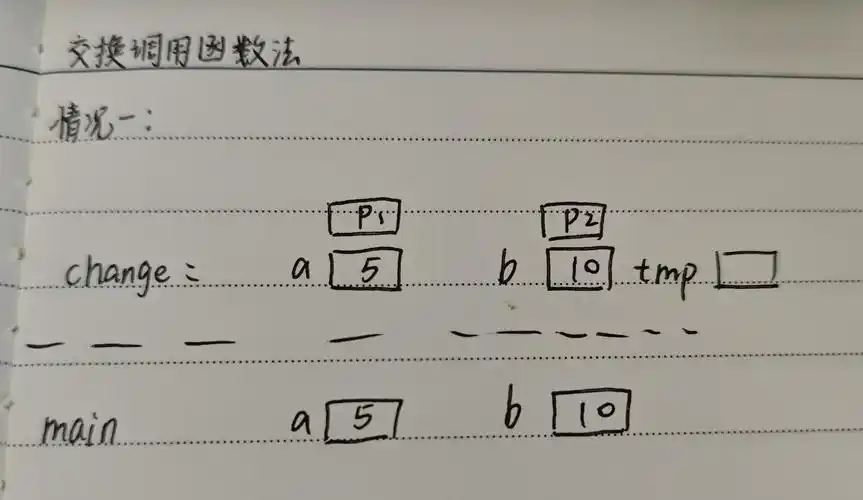 交换调用函数法
情况一:
P1 P2
change: a 5 b 10 tmp
main a 5 b 10